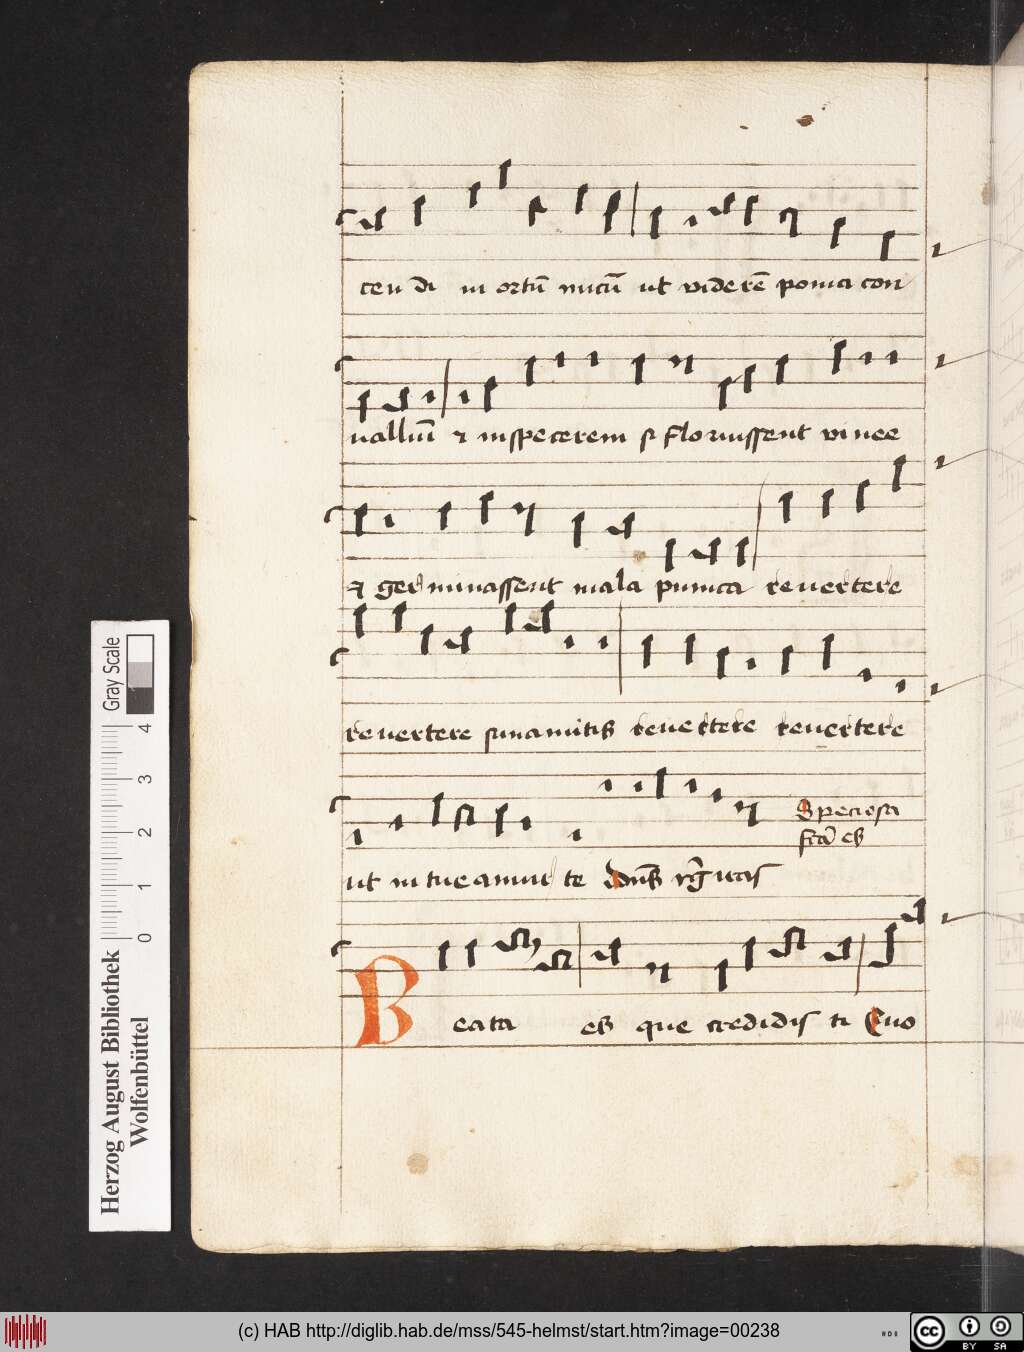 cen di in ortū nucū ut viderē poma con
valliū & inspecerem si floruissent vinee
& germinassent mala punica revertere
revertere sunamitis revertere revertere
ut intueamur te
Speciosa
fca es
Beata es que credidisti Euo
Gray Scale
0 1 2 3 4
Herzog August Bibliothek
Wolfenbüttel
(c) HAB http://diglib.hab.de/mss/545-helmst/start.htm?image=00238
cc BY SA